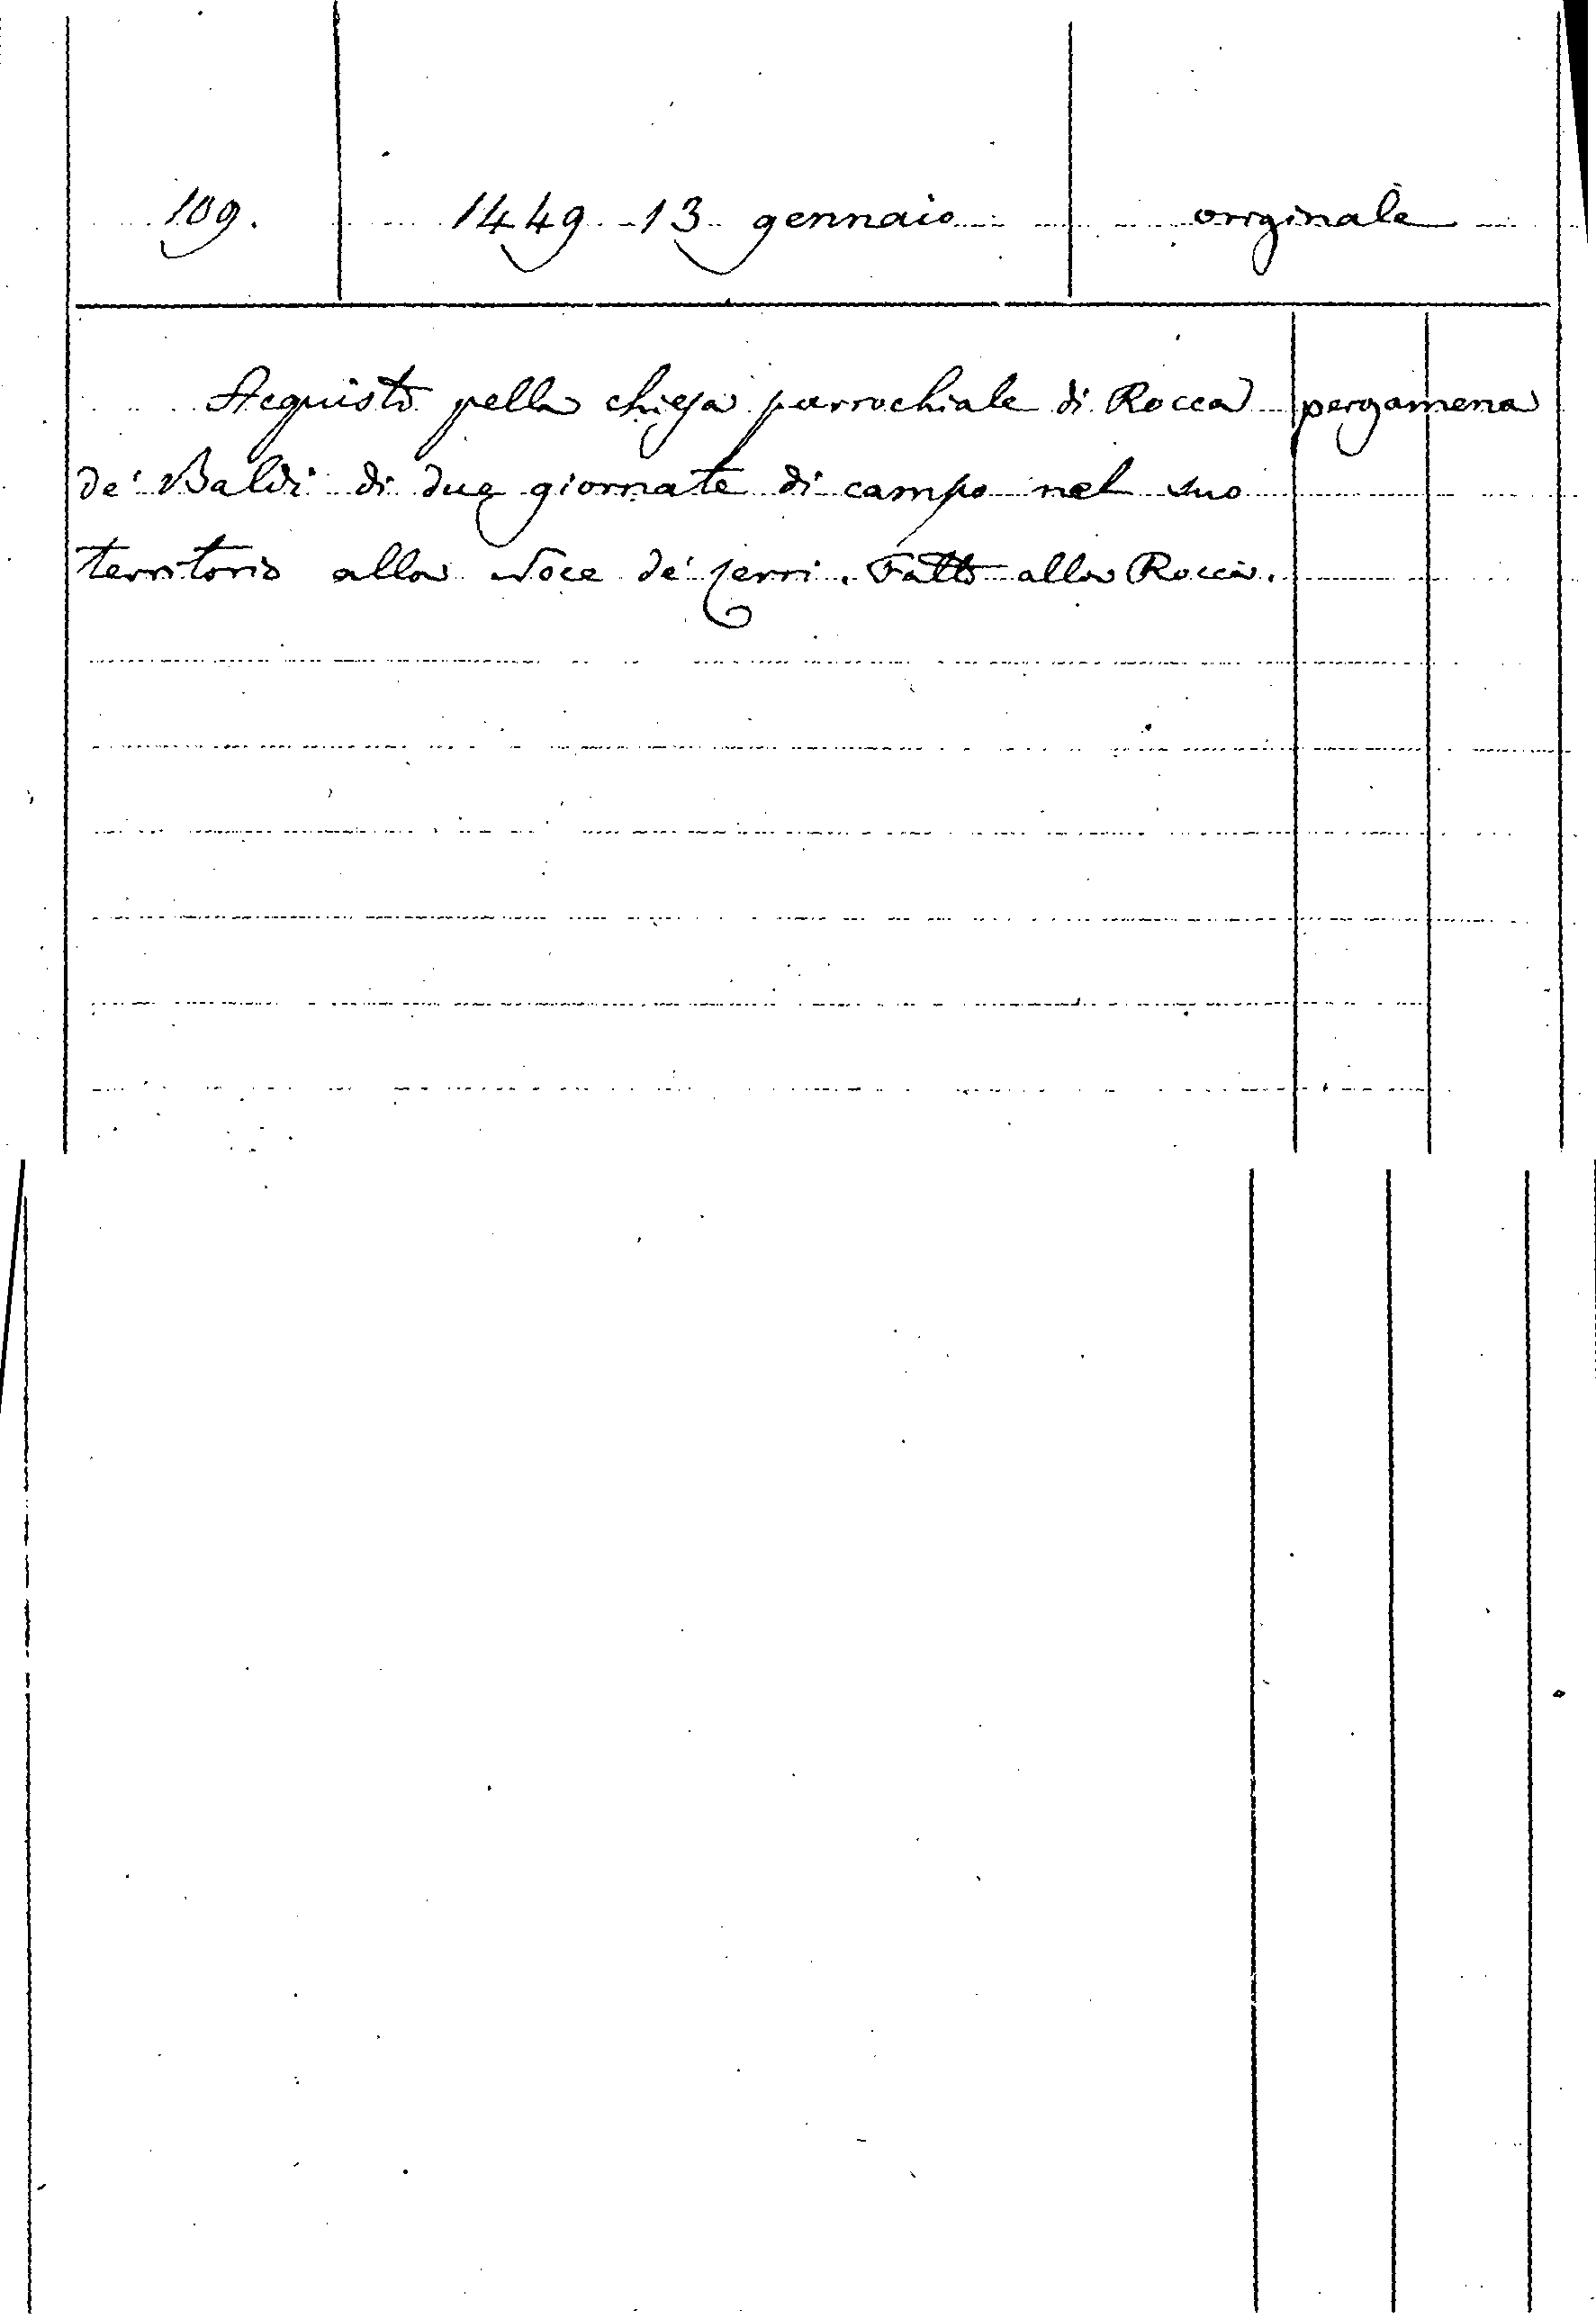 109. 1449 13 gennaio originale
Acquisto pella chiesa parrochiale di Rocca pergamena
de' Baldi di due giornate di campo nel suo
territorio alla Noce de' Ferri. Fatto alla Rocca.